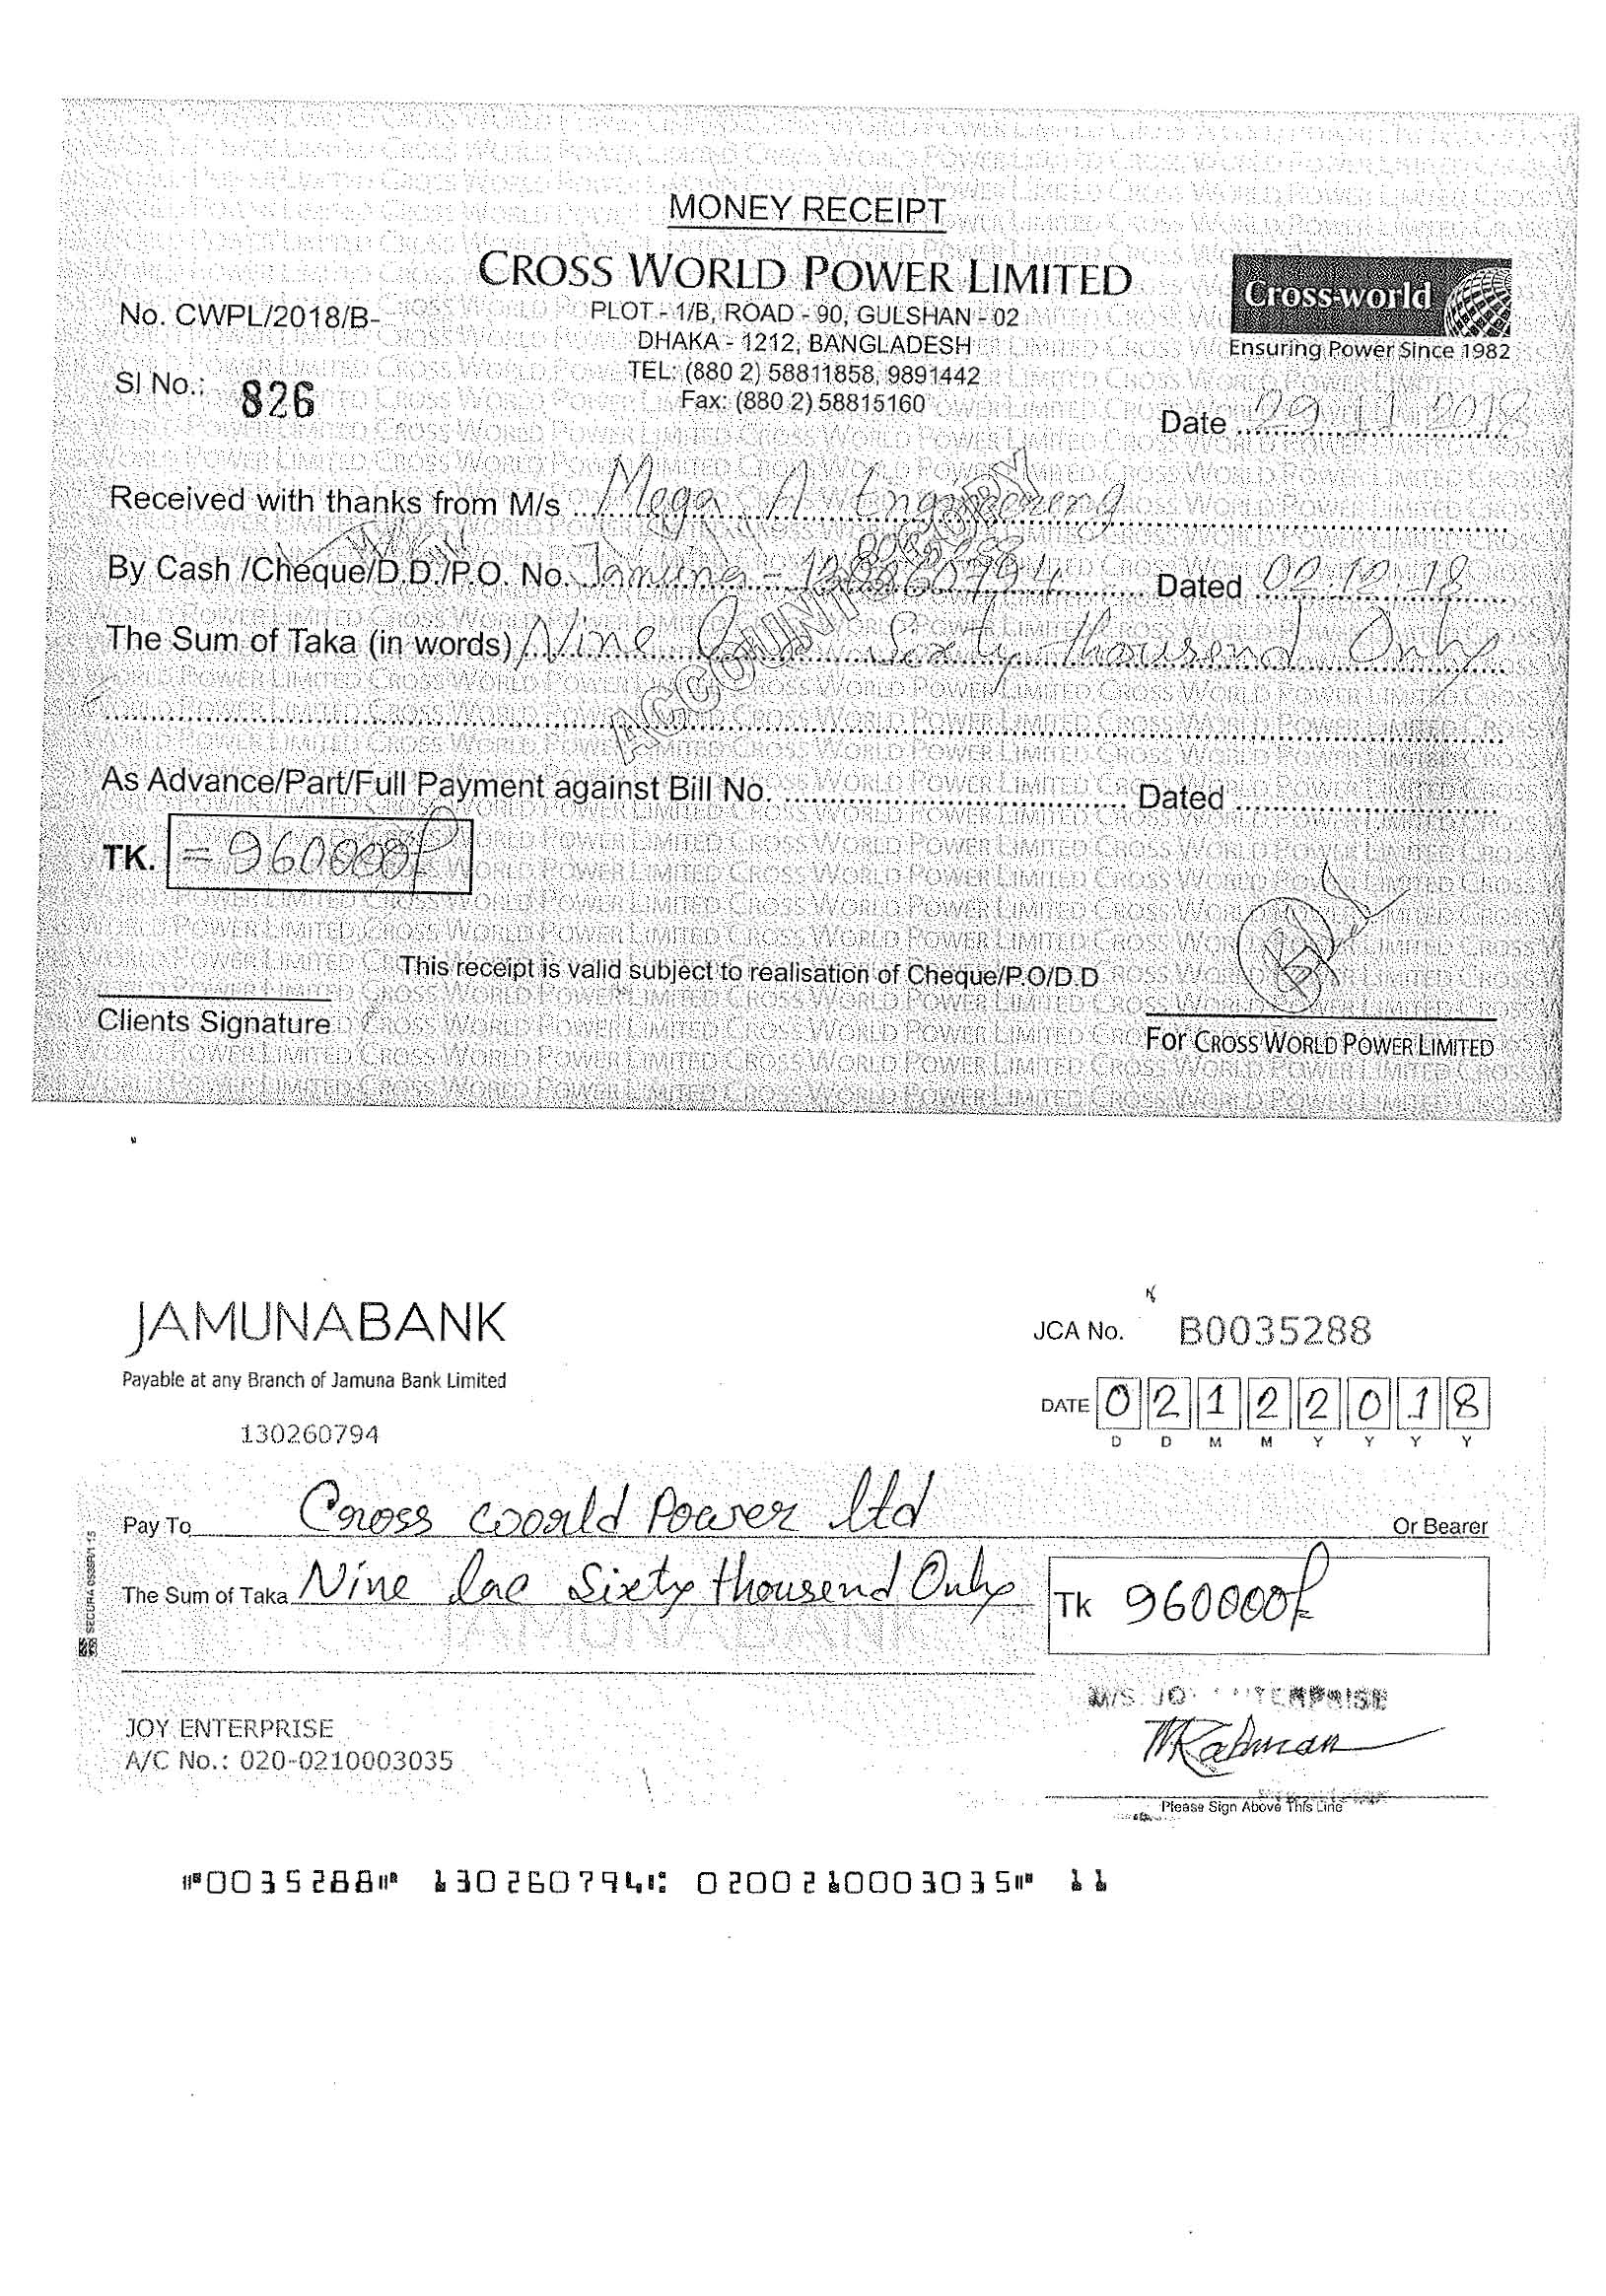 MONEY RECEIPT
CROSS WORLD POWER LIMITED
Cross-world
No. CWPL/2018/B-
PLOT - 1/B, ROAD - 90, GULSHAN - 02
DHAKA - 1212, BANGLADESH
Ensuring Power Since 1982
Sl No.: 826
TEL: (880 2) 58811858, 9891442
Fax: (880 2) 58815160
Date 29 11 2018
Received with thanks from M/s Mega A Engineering
By Cash /Cheque/D.D./P.O. No. Jamuna - Dated 02.12.18
The Sum of Taka (in words) Nine Sixty thousend Only
ACCOUNT COPY
As Advance/Part/Full Payment against Bill No. Dated
TK. = 960000/-
This receipt is valid subject to realisation of Cheque/P.O/D.D
Clients Signature
For CROSS WORLD POWER LIMITED
JAMUNABANK
JCA No. B0035288
Payable at any Branch of Jamuna Bank Limited
DATE 02122018
D D M M Y Y Y Y
130260794
Pay To Cross World Power ltd Or Bearer
The Sum of Taka Nine lac Sixty thousend Only Tk 960000/-
JAMUNABANK
SECURA
JOY ENTERPRISE
A/C No.: 020-0210003035
M/S. JOY ENTERPRISE
MRahman
Please Sign Above This Line
⑈0035288⑈ 130260794⑆ 0200210003035⑈ 11